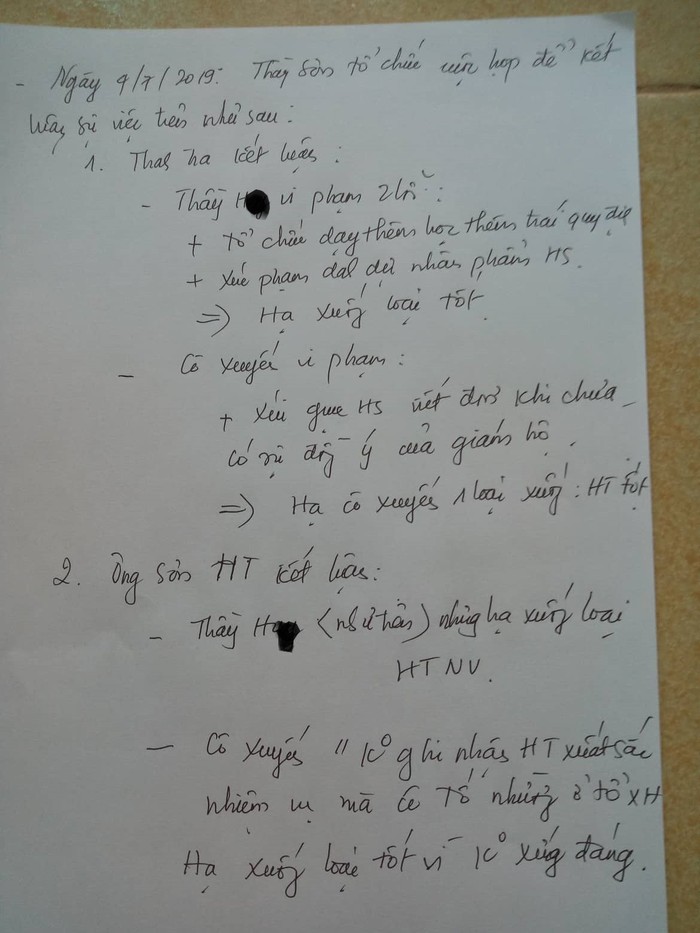 - Ngày 4/7/2019: Thầy Sơn tổ chức cuộc họp để kết
luận sự việc trên như sau:
1. Thanh tra kết luận:
- Thầy H vi phạm 2 lỗi:
+ tổ chức dạy thêm học thêm trái quy định
+ xúc phạm danh dự nhân phẩm HS.
=> Hạ xuống loại tốt.
- Cô Xuyến vi phạm:
+ xúi giục HS viết đơn khi chưa
có sự đồng ý của giám hộ.
=> Hạ cô Xuyến 1 loại xuống: HT tốt
2. Ông Sơn HT kết luận:
- Thầy H (như trên) nhưng hạ xuống loại
HTNV.
- Cô Xuyến " K° ghi nhận HT xuất sắc
nhiệm vụ mà cô Tố nhưng ở tổ XH
Hạ xuống loại tốt vì K° xứng đáng.